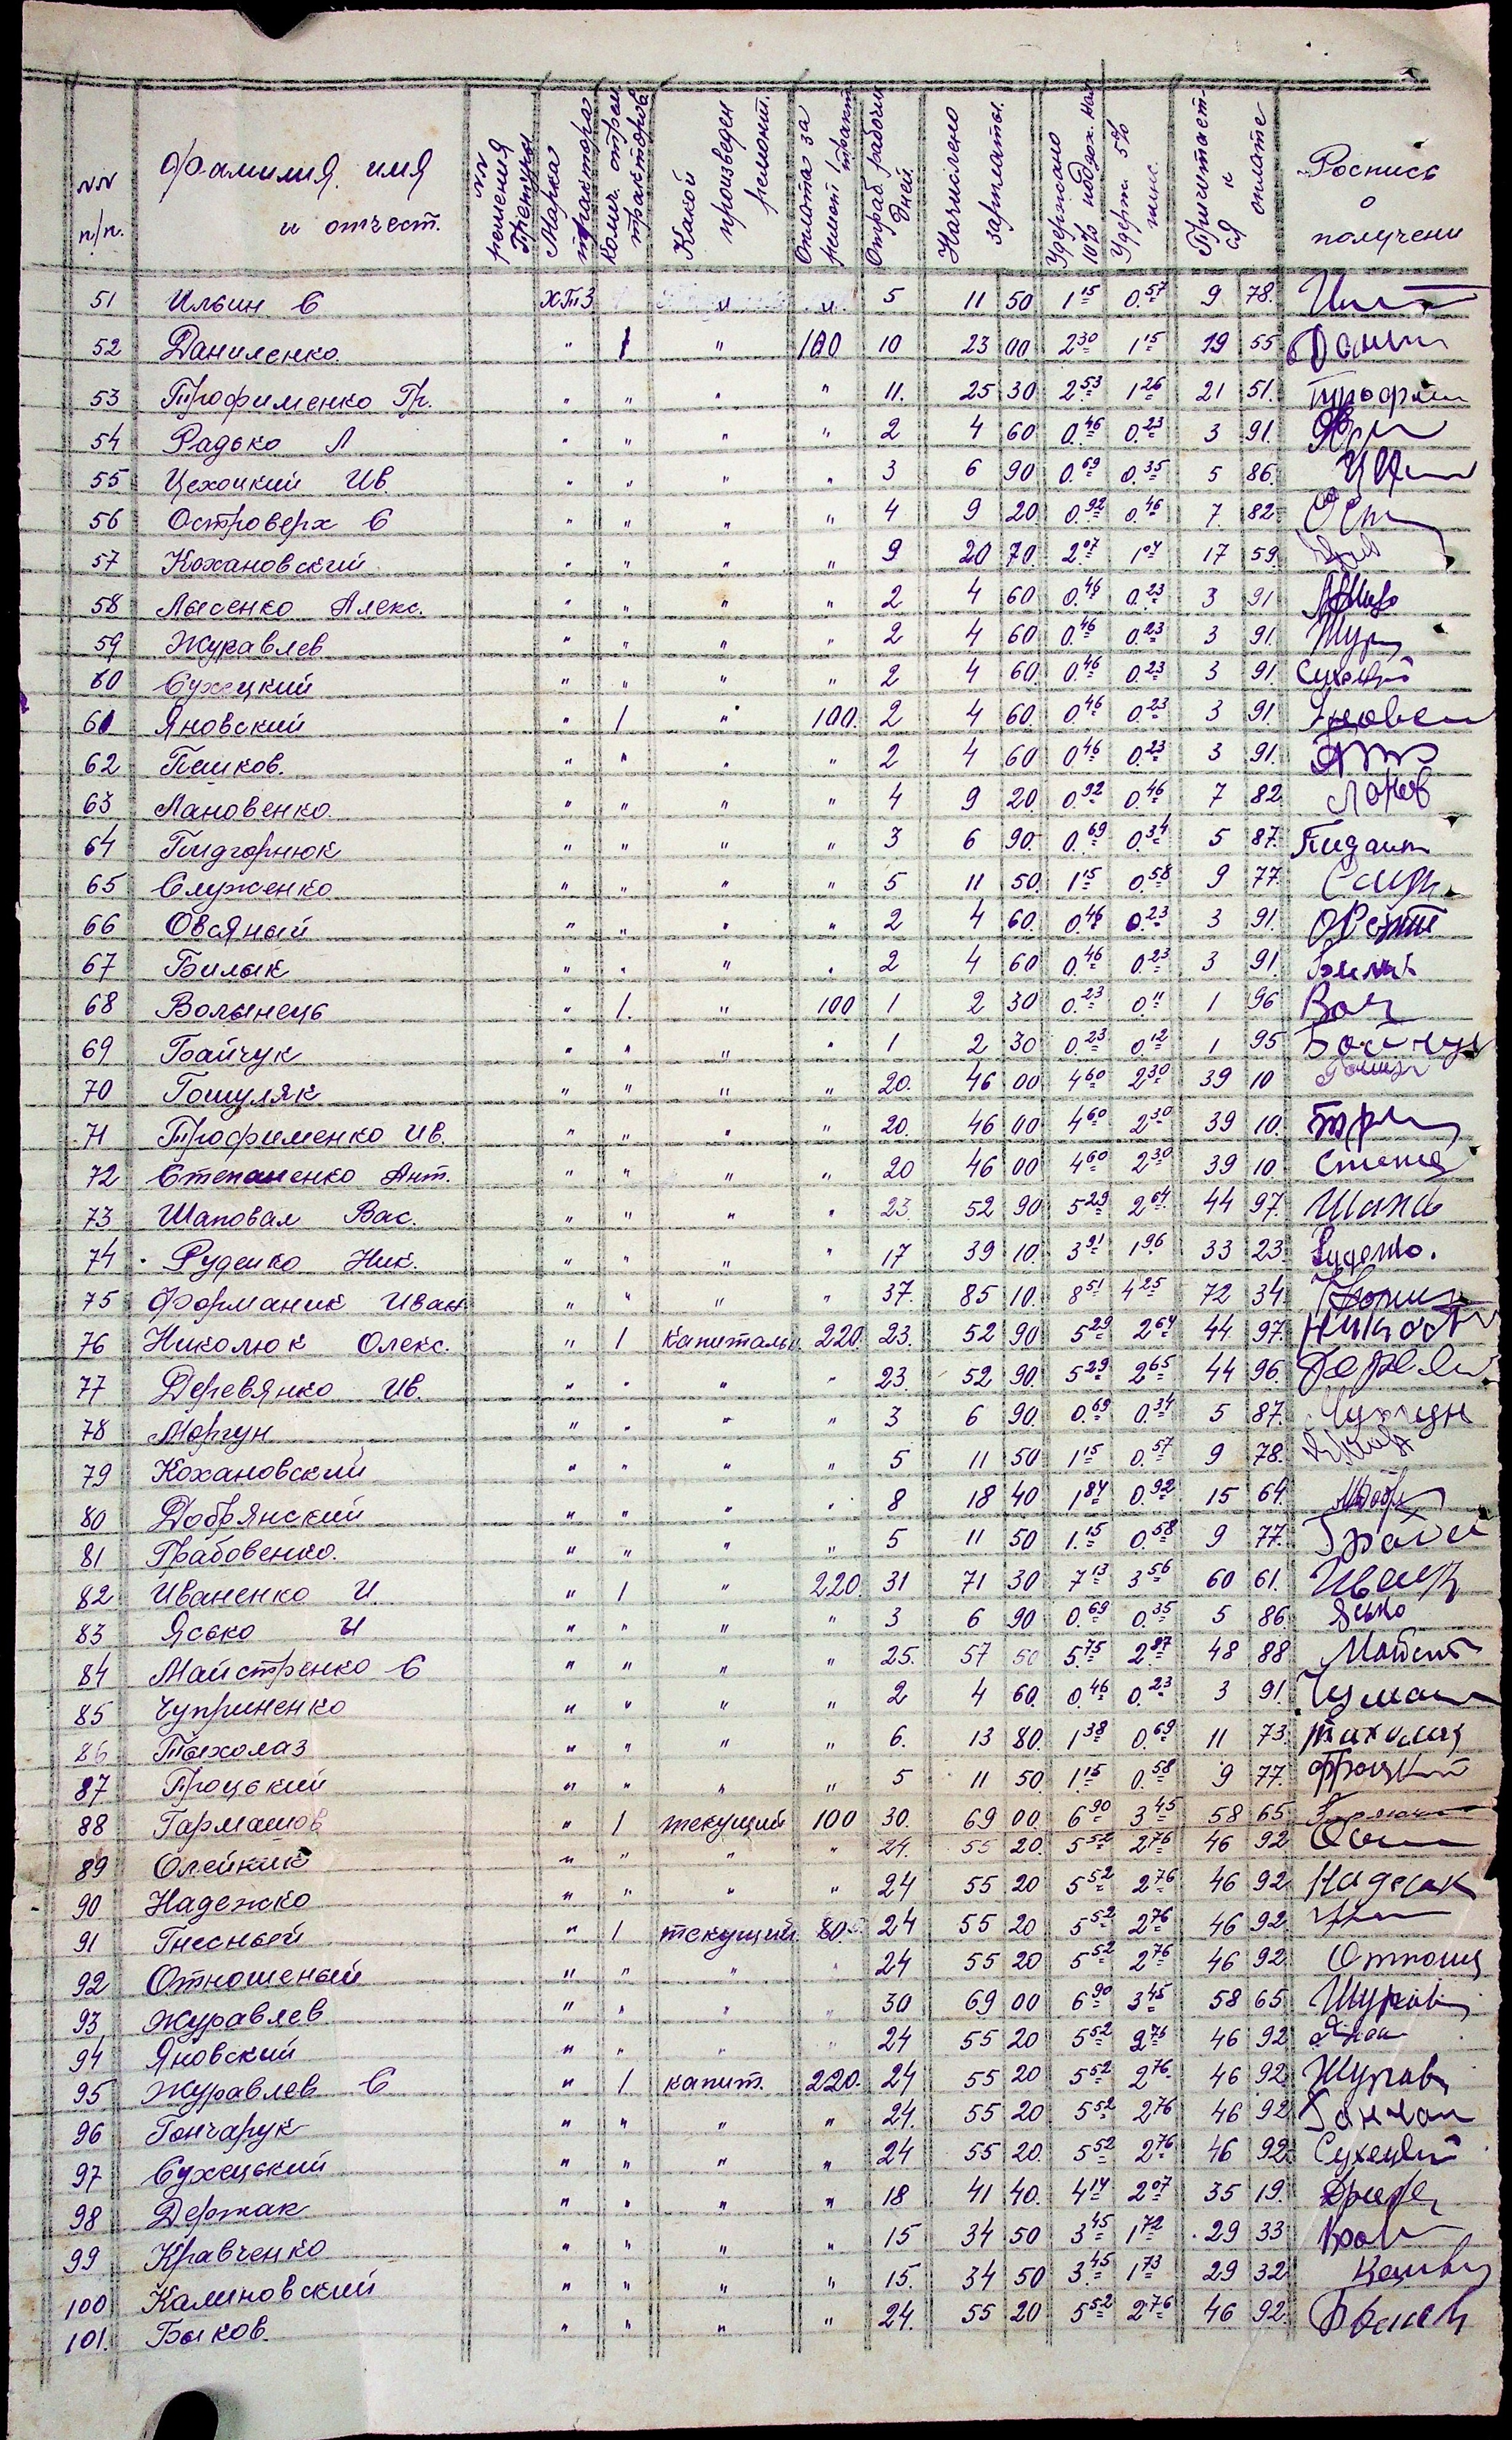 NN п/п. Фамилия, имя и отчест. NN решения Тройки Марка трактора Колич. отрем. тракторов Какой произведен ремонт. Оплата за ремонт 1 тракт Отраб. рабочих дней Начислено зарплаты. Удержано 10% подох. нал Удерж. 5% Причитается к оплате Роспись о получени
51 Ильин С ХТЗ " " 5 11 50 1 15 0.57 9 78.
52 Даниленко. " 1 " 100 10 23 00 2 30 1 15 19 55
53 Трофименко Гр. " " " " 11. 25 30 2.53 1 26 21 51.
54 Радько Л " " " " 2 4 60 0.46 0.23 3 91.
55 Цехоцкий Ив. " " " " 3 6 90 0.69 0.35 5 86.
56 Островерх С " " " " 4 9 20 0.92 0.46 7 82
57 Кохановский " " " " 9 20 70 2.07 1 04 17 59.
58 Лысенко Алекс. " " " " 2 4 60 0.46 0.23 3 91
59 Журавлев " " " " 2 4 60 0.46 0.23 3 91.
60 Сухецкий " " " " 2 4 60 0.46 0.23 3 91.
61 Яновский " 1 " 100. 2 4 60 0.46 0.23 3 91
62 Пешков. " " " " 2 4 60 0 46 0.23 3 91.
63 Лановенко. " " " " 4 9 20 0.92 0.46 7 82
64 Пидгорнюк " " " " 3 6 90. 0.69 0.34 5 87.
65 Служенко " " " " 5 11 50. 1 15 0.58 9 77.
66 Овсяный " " " " 2 4 60. 0.46 0.23 3 91.
67 Билык " " " " 2 4 60 0.46 0.23 3 91.
68 Волынець " 1. " 100 1 2 30 0.23 0.11 1 96
69 Байчук " " " " 1 2 30 0.23 0.12 1 95
70 Гошуляк " " " " 20. 46 00 4 60 2 30 39 10
71 Трофименко Ив. " " " " 20. 46 00 4 60 2 30 39 10.
72 Степаненко Ант. " " " " 20 46 00 4 60 2 30 39 10
73 Шаповал Вас. " " " " 23 52 90 5 29 2 64 44 97.
74 Руденко Ник. " " " " 17 39 10. 3 91 1 96 33 23.
75 Форманик Иван " " " " 37. 85 10. 8 51 4 25 72 34.
76 Николюк Олекс. " 1 капитальн. 220. 23. 52 90 5 29 2 64 44 97.
77 Деревянко Ив. " " " " 23. 52 90. 5 29 2 65 44 96.
78 Моргун " " " " 3 6 90. 0.69 0.34 5 87.
79 Кохановский " " " " 5 11 50 1 15 0.57 9 78.
80 Добрянский " " " " 8 18 40 1 84 0.92 15 64.
81 Грабовенко. " " " " 5 11 50 1.15 0.58 9 77.
82 Иваненко И " 1 " 220. 31 71 30 7 13 3 56 60 61.
83 Ясько И " " " " 3 6 90 0.69 0.35 5 86.
84 Майстренко С " " " " 25. 57 50 5.75 2.87 48 88
85 Чуприненко " " " " 2 4 60. 0.46 0.23 3 91.
86 Тыхолаз " " " " 6. 13 80. 1 38 0.69 11 73.
87 Процький " " " " 5 11 50. 1 15 0.58 9 77.
88 Гармашов " 1 текущий 100 30. 69 00. 6 90 3 45 58 65.
89 Олейник " " " " 24. 55 20. 5 52 2 76 46 92
90 Надежко " " " " 24 55 20 5 52 2 76 46 92
91 Гнесный " 1 текущий 80. 24 55 20 5 52 2 76 46 92.
92 Отношеный " " " " 24 55 20 5 52 2 76 46 92.
93 Журавлев " " " " 30 69 00 6 90 3 45 58 65
94 Яновский " " " " 24 55 20 5 52 2 76 46 92
95 Журавлев С " 1 капит. 220. 24 55 20 5 52 2 76 46 92.
96 Гончарук " " " " 24. 55 20 5 52 2 76 46 92
97 Сухецький " " " " 24 55 20. 5 52 2 76 46 92.
98 Держак " " " " 18 41 40. 4 14 2 07 35 19.
99 Кравченко " " " " 15 34 50 3 45 1 72 29 33
100 Калиновский " " " " 15. 34 50 3.45 1 73 29 32
101. Быков. " " " " 24. 55 20 5 52 2 76 46 92.